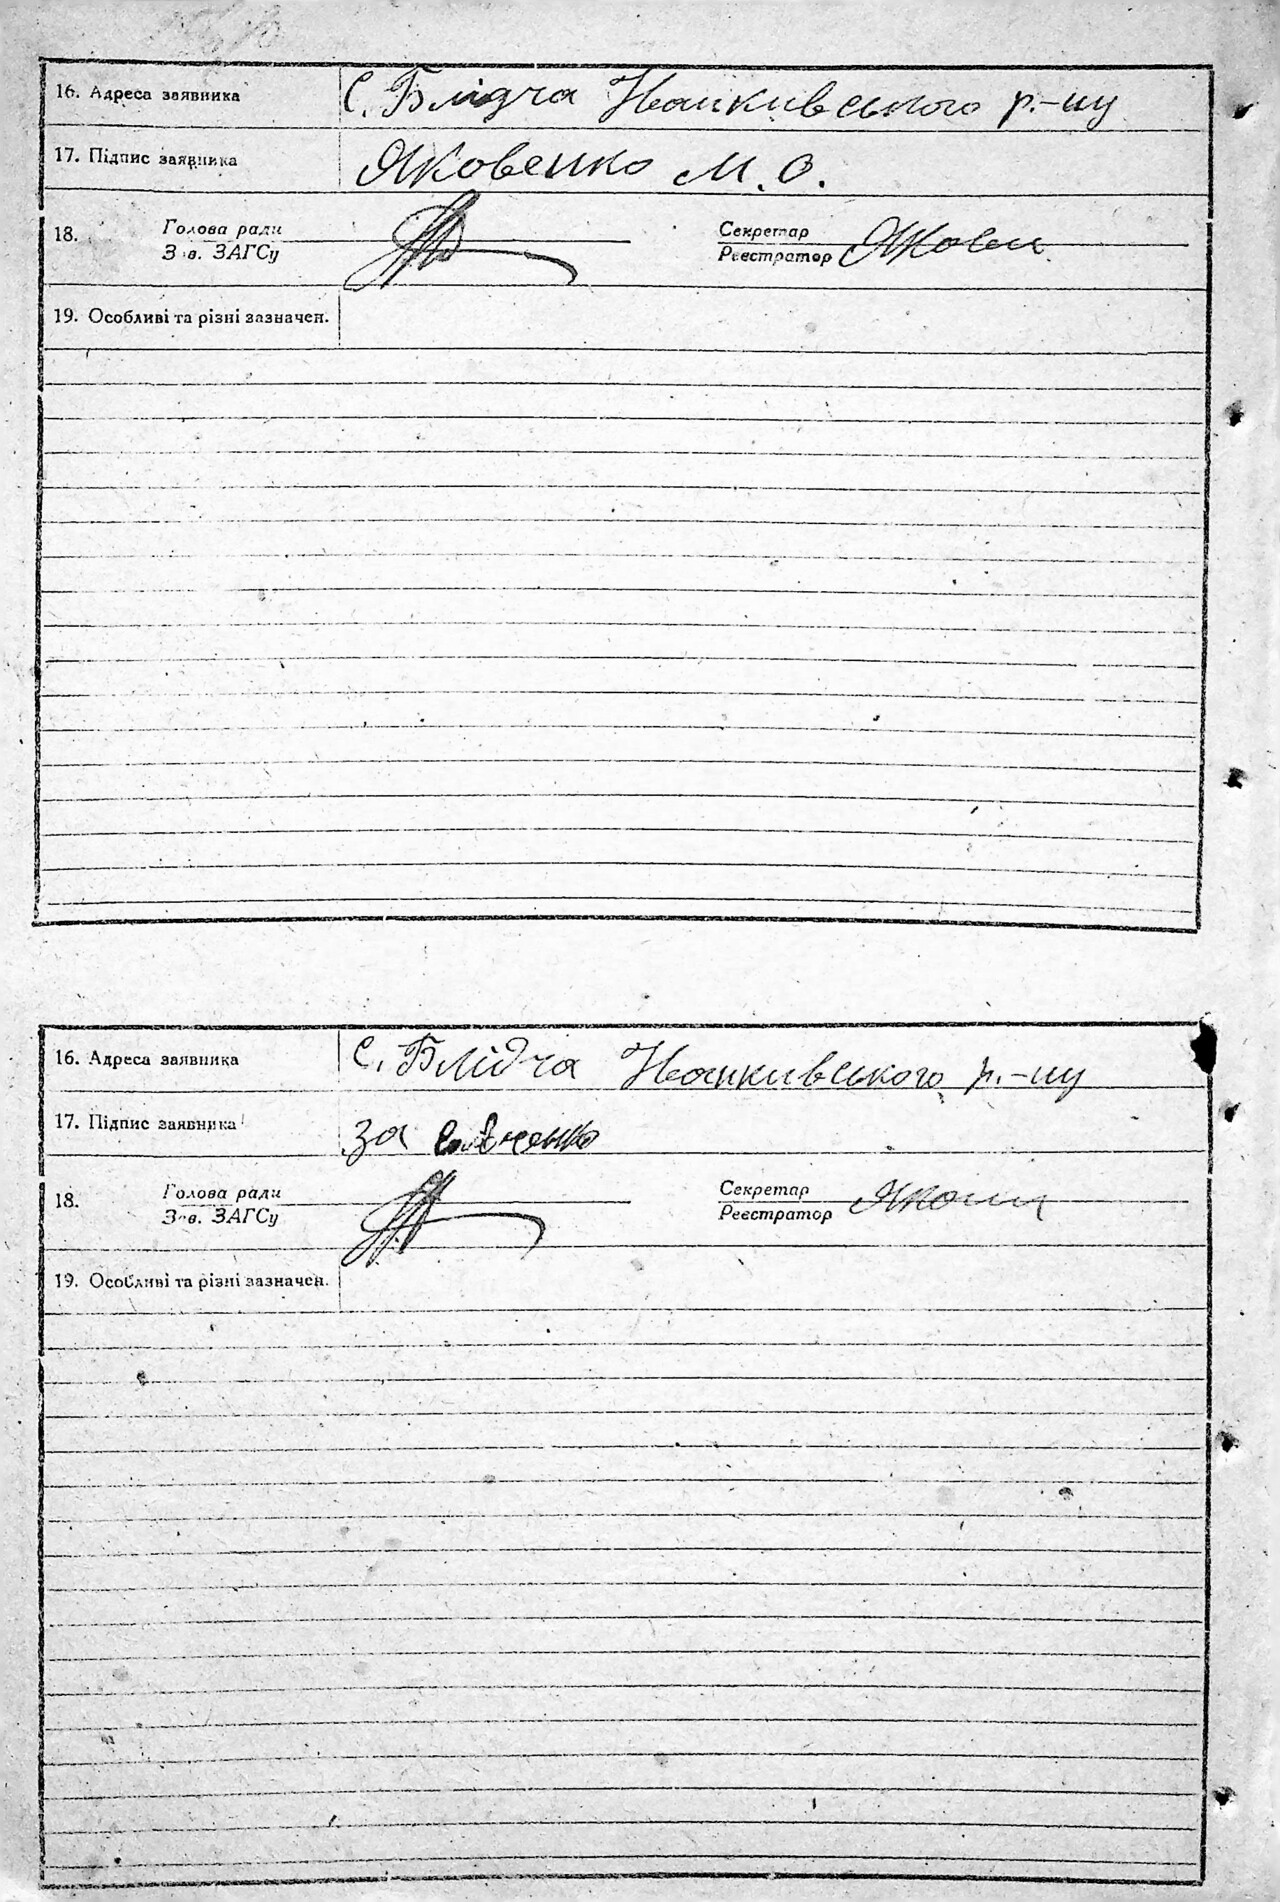 16. Адреса заявника С. Блідча Іванківського р.-ну
17. Підпис заявника Яковенко М. О.
18. Голова ради Секретар
Зав. ЗАГСу Реєстратор
19. Особливі та різні зазначен.
16. Адреса заявника С. Блідча Іванківського р.-ну
17. Підпис заявника за
18. Голова ради Секретар
Зав. ЗАГСу Реєстратор
19. Особливі та різні зазначен.